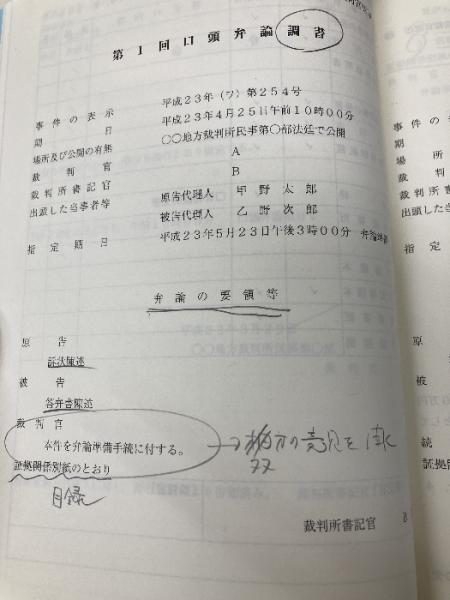 第１回口頭弁論調書
事件の表示 平成２３年（ワ）第２５４号
期日 平成２３年４月２５日午前１０時００分
場所及び公開の有無 〇〇地方裁判所民事第〇部法廷で公開
裁判官 Ａ
裁判所書記官 Ｂ
出頭した当事者等 原告代理人 甲野太郎
被告代理人 乙野次郎
指定期日 平成２３年５月２３日午後３時００分 弁論準備
弁論の要領等
原告
訴状陳述
被告
答弁書陳述
裁判官
本件を弁論準備手続に付する。
→ 双方の意見を
双
証拠関係別紙のとおり
目録
裁判所書記官 Ｂ
事件の
期
場所
裁判
裁判所書
出頭した
指定
原
被
続
証拠関